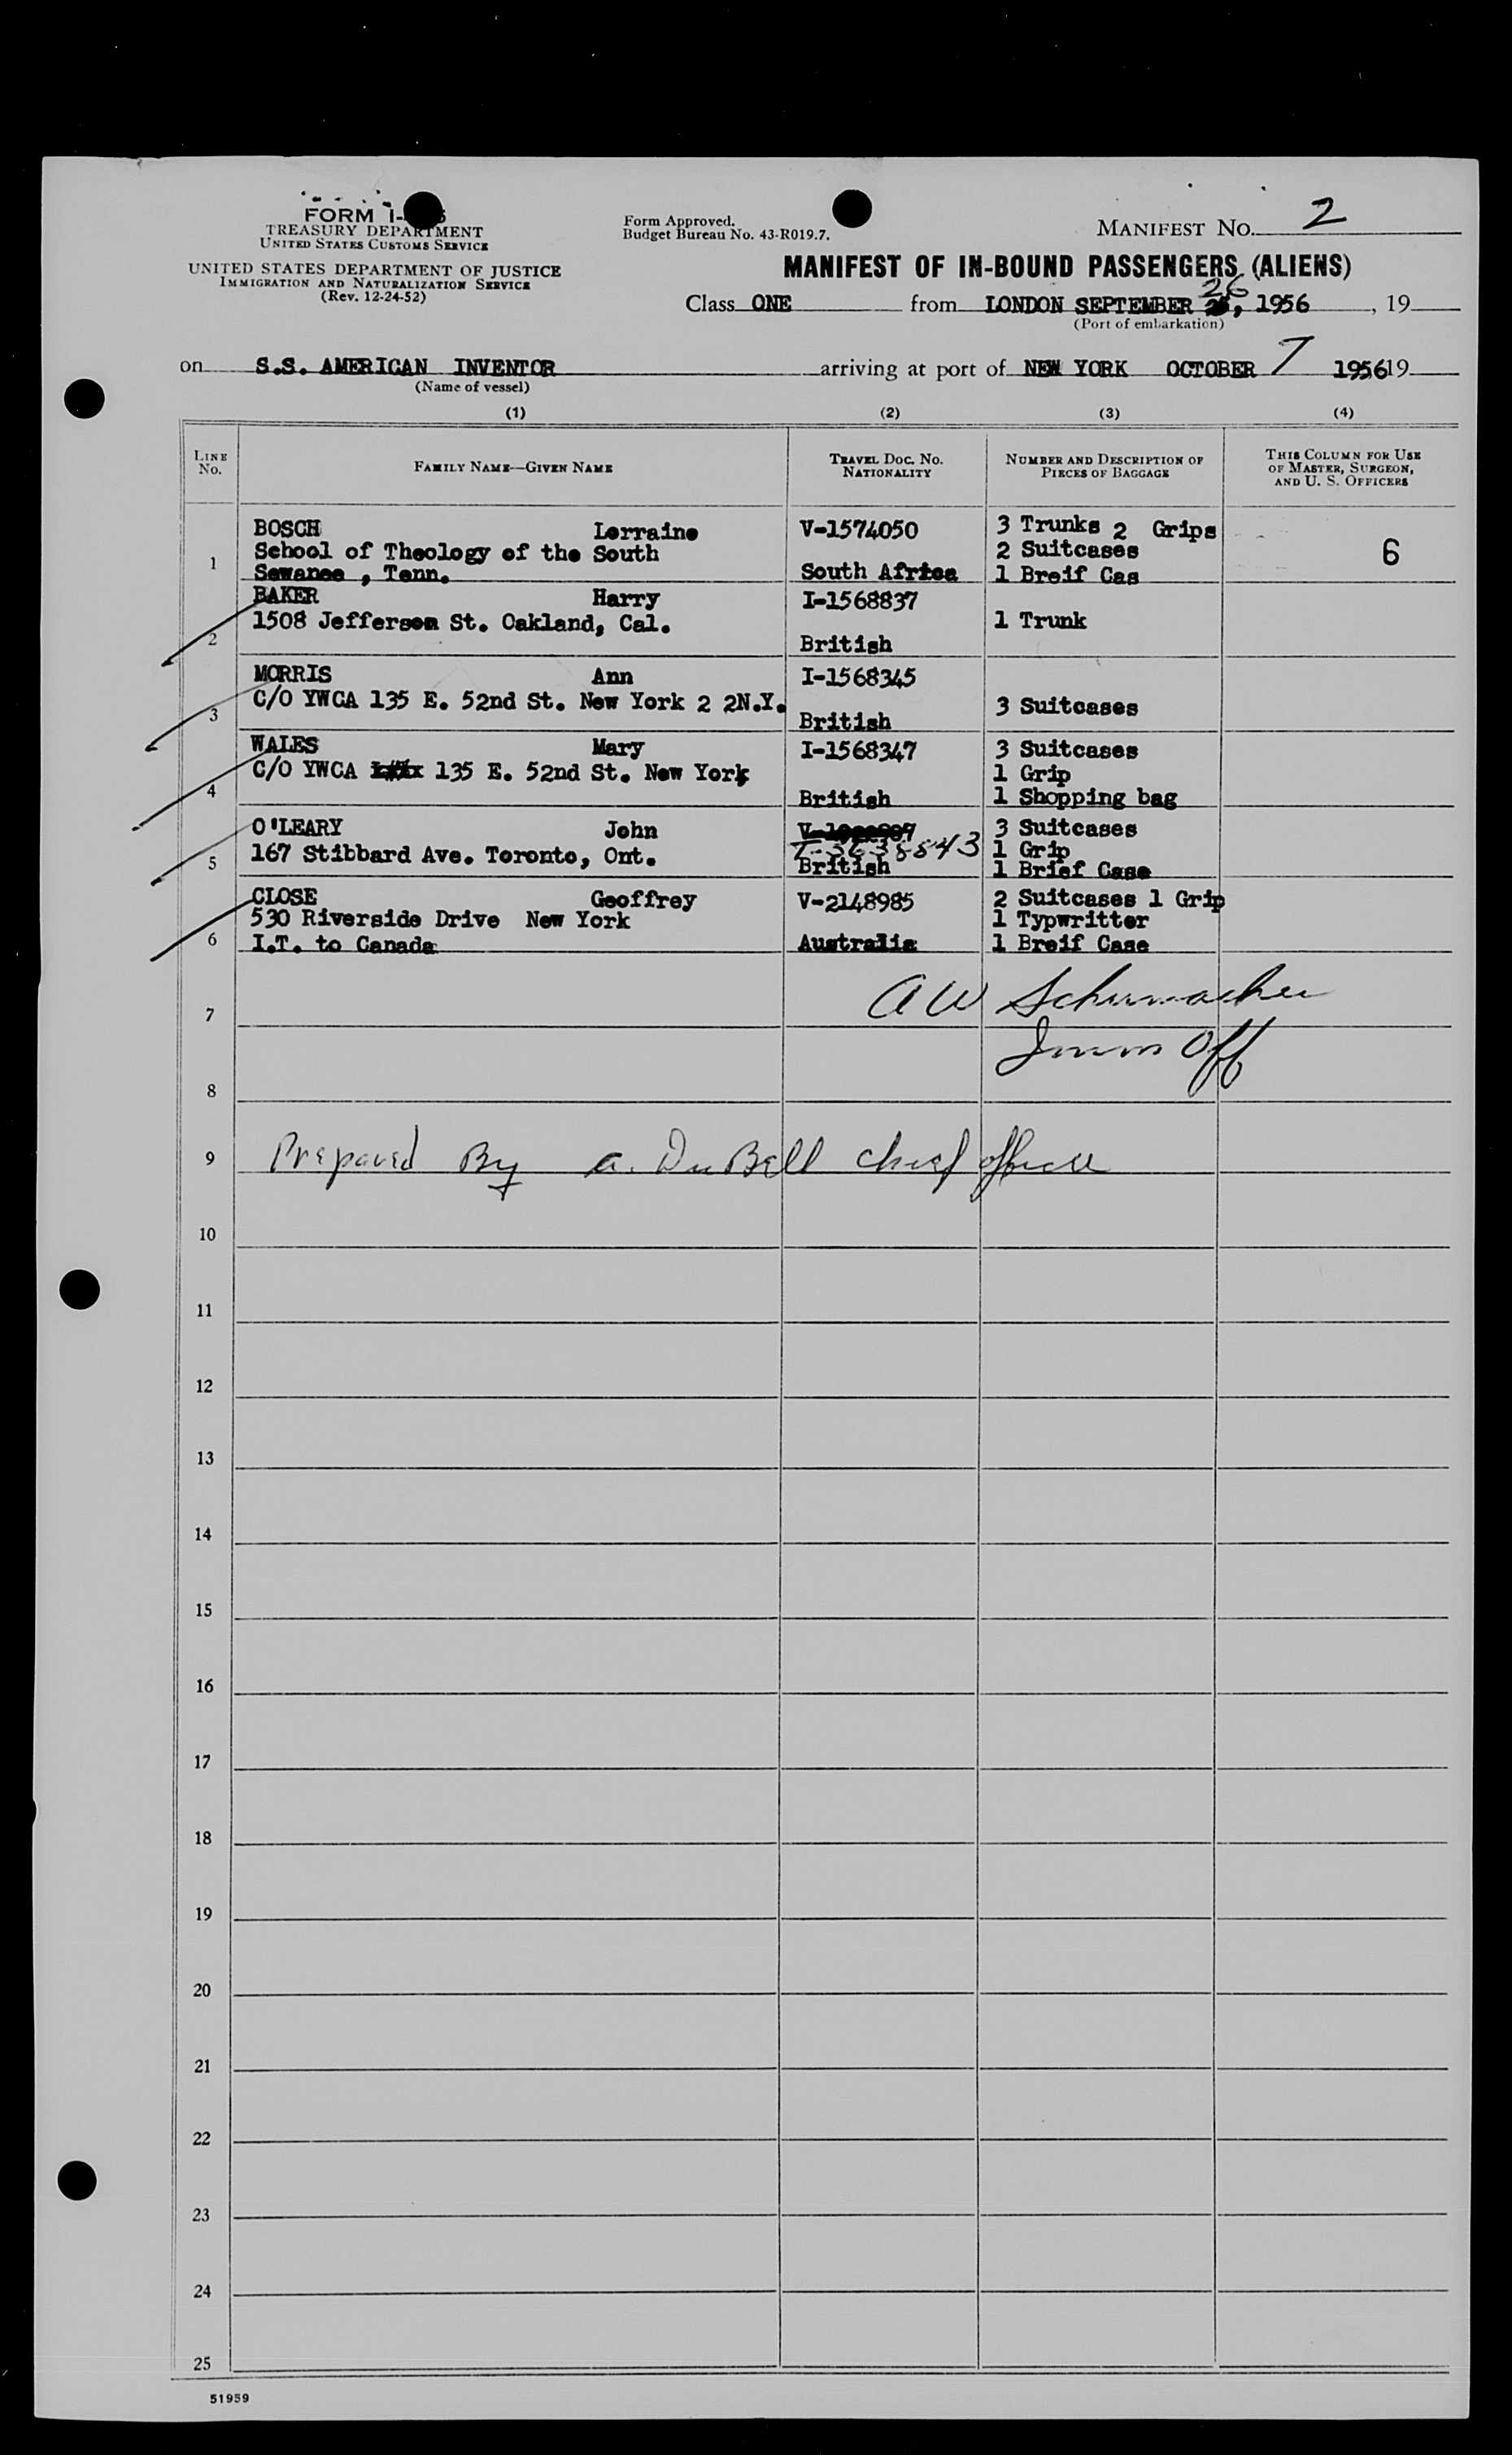 FORM I-
TREASURY DEPARTMENT
UNITED STATES CUSTOMS SERVICE
UNITED STATES DEPARTMENT OF JUSTICE
IMMIGRATION AND NATURALIZATION SERVICE
(Rev. 12-24-52)
Form Approved.
Budget Bureau No. 43-R019.7.
MANIFEST NO. 2
MANIFEST OF IN-BOUND PASSENGERS (ALIENS)
Class ONE from LONDON SEPTEMBER 26, 1956, 19
(Port of embarkation)
on S.S. AMERICAN INVENTOR arriving at port of NEW YORK OCTOBER 7 1956 19
(Name of vessel)
(1) (2) (3) (4)
LINE No.
FAMILY NAME—GIVEN NAME
TRAVEL DOC. NO. NATIONALITY
NUMBER AND DESCRIPTION OF PIECES OF BAGGAGE
THIS COLUMN FOR USE OF MASTER, SURGEON, AND U. S. OFFICERS
BOSCH Lorraine V-1574050 3 Trunks 2 Grips
1 School of Theology of the South 2 Suitcases 6
Sewanee , Tenn. South Africa 1 Breif Cas
BAKER Harry I-1568837
2 1508 Jefferson St. Oakland, Cal. 1 Trunk
British
MORRIS Ann I-1568345
3 C/O YWCA 135 E. 52nd St. New York 2 2N.Y. 3 Suitcases
British
WALES Mary I-1568347 3 Suitcases
4 C/O YWCA 135 E. 52nd St. New York 1 Grip
British 1 Shopping bag
O'LEARY John 3 Suitcases
5 167 Stibbard Ave. Toronto, Ont. T-3638843 1 Grip
British 1 Brief Case
CLOSE Geoffrey V-2148985 2 Suitcases 1 Grip
6 530 Riverside Drive New York 1 Typwritter
I.T. to Canada Australia 1 Breif Case
7 A W Schumacher
Imm Off
8
9 Prepared By A. DuBell chief officer
10
11
12
13
14
15
16
17
18
19
20
21
22
23
24
25
51959